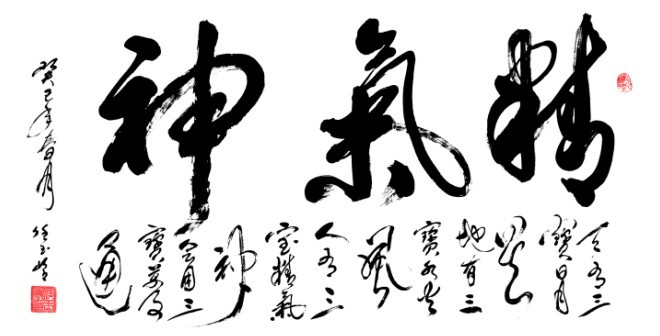 精氣神
天有三
寶日月
星
地有三
寶水火
風
人有三
宝精氣
神
會用三
寶
通
癸巳年春月
任玉岭